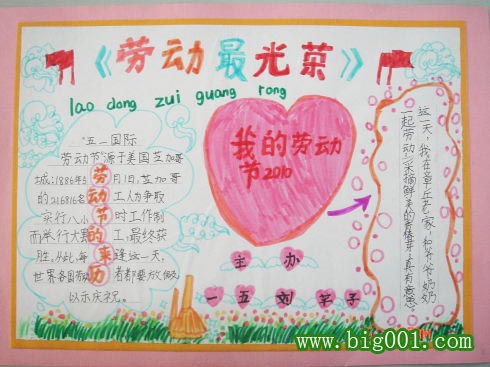 《劳动最光荣》
lao dong zui guang rong
"五一国际
劳动节"源于美国芝加哥
城,1886年5月1日,芝加哥
的216816名工人为争取
实行八小时工作制
而举行大罢工,最终获
胜,为此,每逢这一天,
世界各国劳动者都要放假,
以示庆祝。
劳动节的来历
我的劳动
节2010
主办
一五 刘 子
这一天,我在章丘艺家,和爷爷奶奶
一起劳动,采摘鲜美的香椿芽,真有意思。
www.big001.com